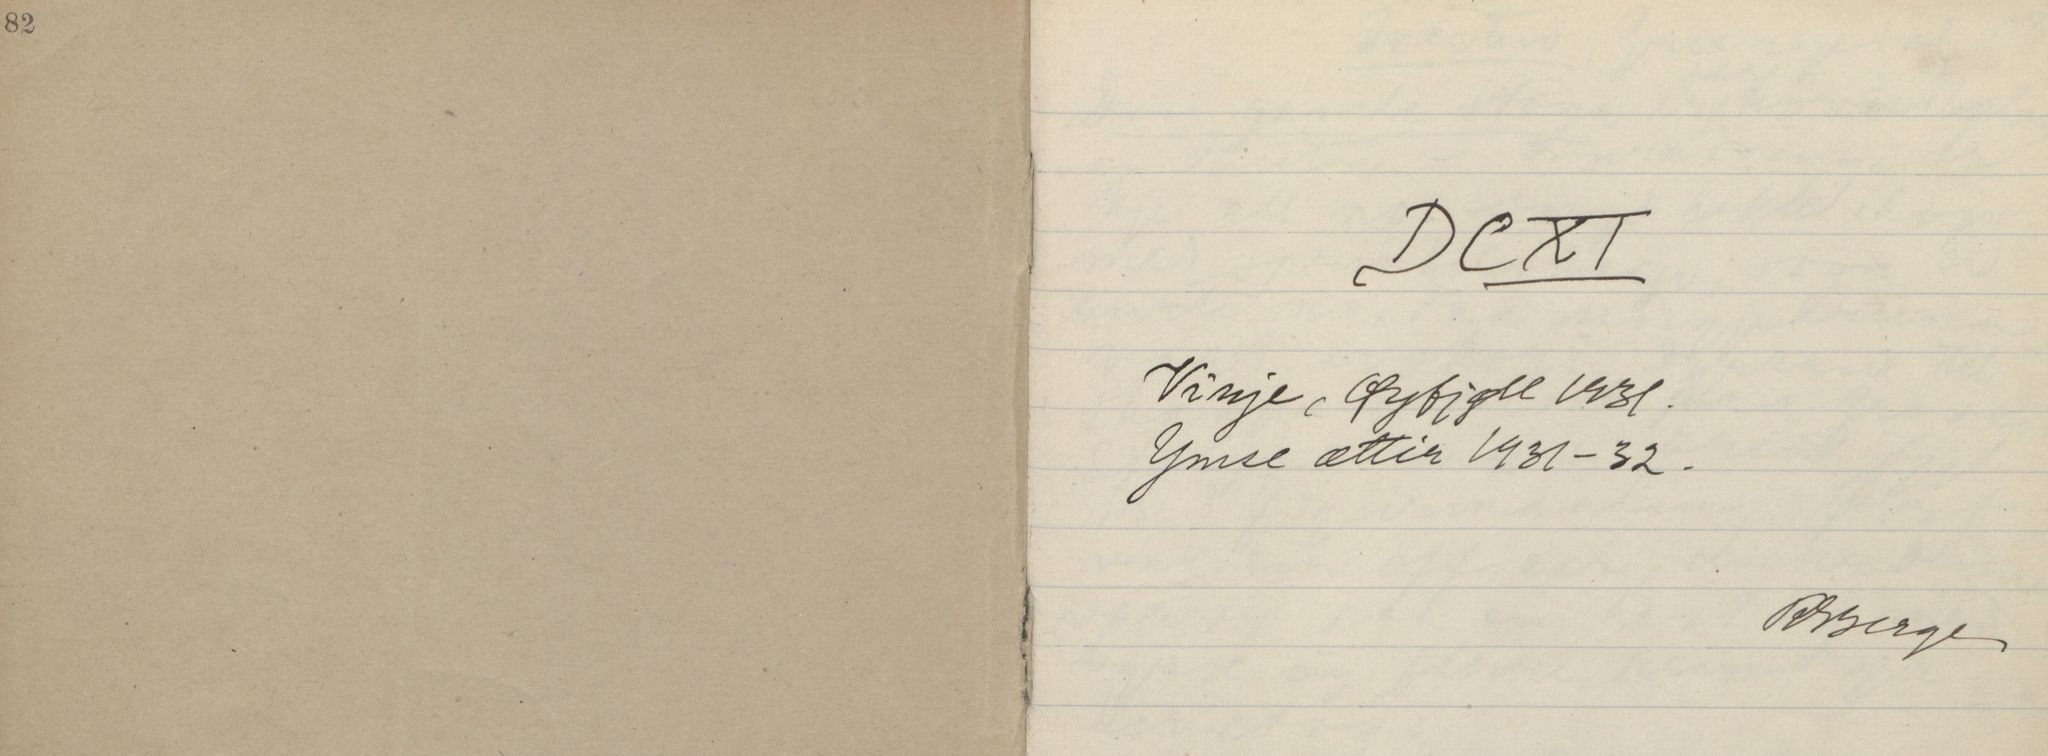 82
DCXI
Vinje, Øyfjell 1931.
Ymse ættir 1931-32.
RBerge